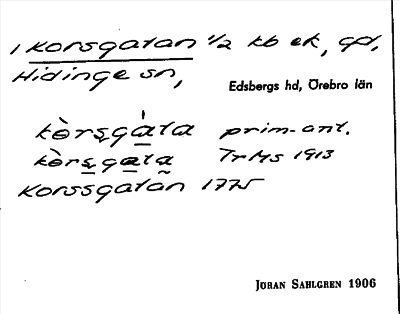 1 Korsgatan 1/2 kb ek, gd,
Hidinge sn,
Edsbergs hd, Örebro län
kòrsgàta prim.-ant.
kòrsgata TrMs 1913
Korssgatan 1775
JÖRAN SAHLGREN 1906